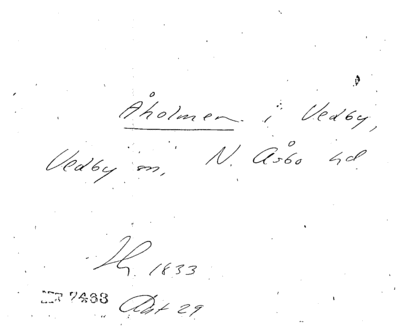 Åholmen i Vedby,
Vedby sn, N. Åsbo hd
Hr. 1833
7433
Akt 29